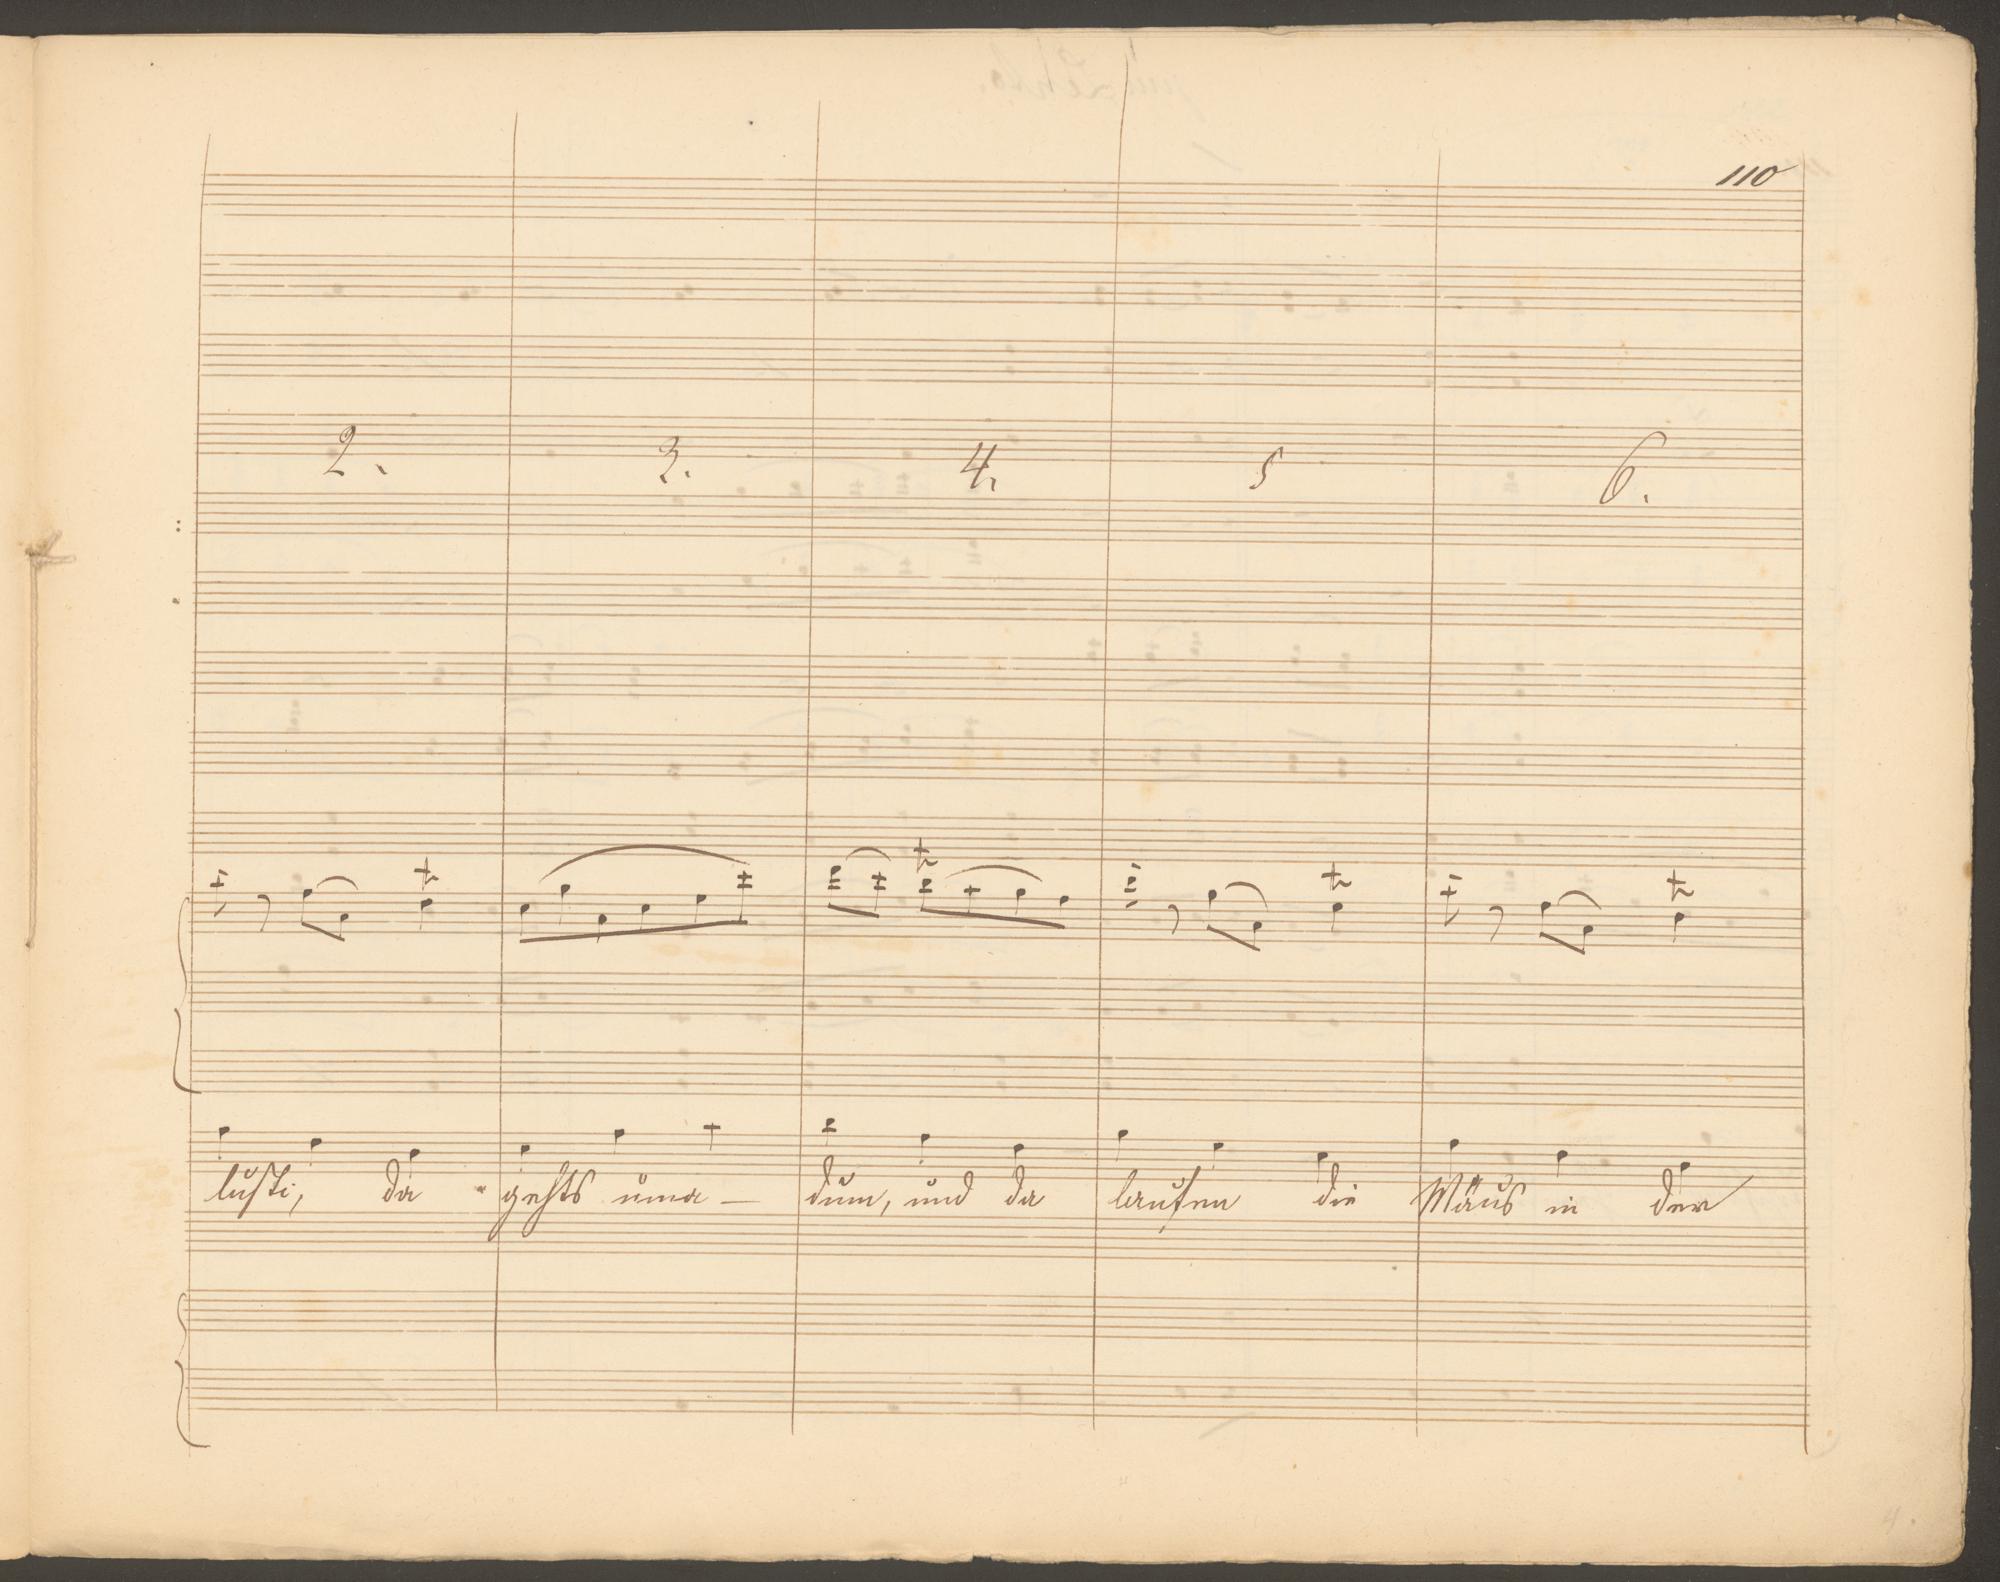 110
2. 3. 4. 5 6.
lusti, da gehts uma- dum, und da laufen die Mäus in der